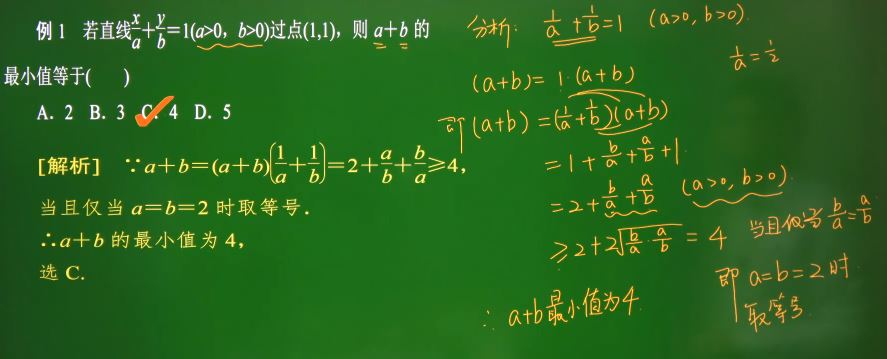 例 1 若直线x/a+y/b=1(a>0, b>0)过点(1,1), 则 a+b 的
最小值等于( )
A. 2 B. 3 C. 4 D. 5
[解析] ∵a+b=(a+b)(1/a+1/b)=2+a/b+b/a≥4,
当且仅当 a=b=2 时取等号.
∴a+b 的最小值为 4,
选 C.
分析: 1/a+1/b=1 (a>0, b>0).
1/a=1/2
(a+b)= 1·(a+b)
(a+b)=(1/a+1/b)(a+b)
=1+b/a+a/b+1.
=2+b/a+a/b (a>0, b>0).
≥2+2√(b/a·a/b) = 4 当且仅当 b/a=a/b
即 a=b=2时
取等号.
∴ a+b最小值为4.